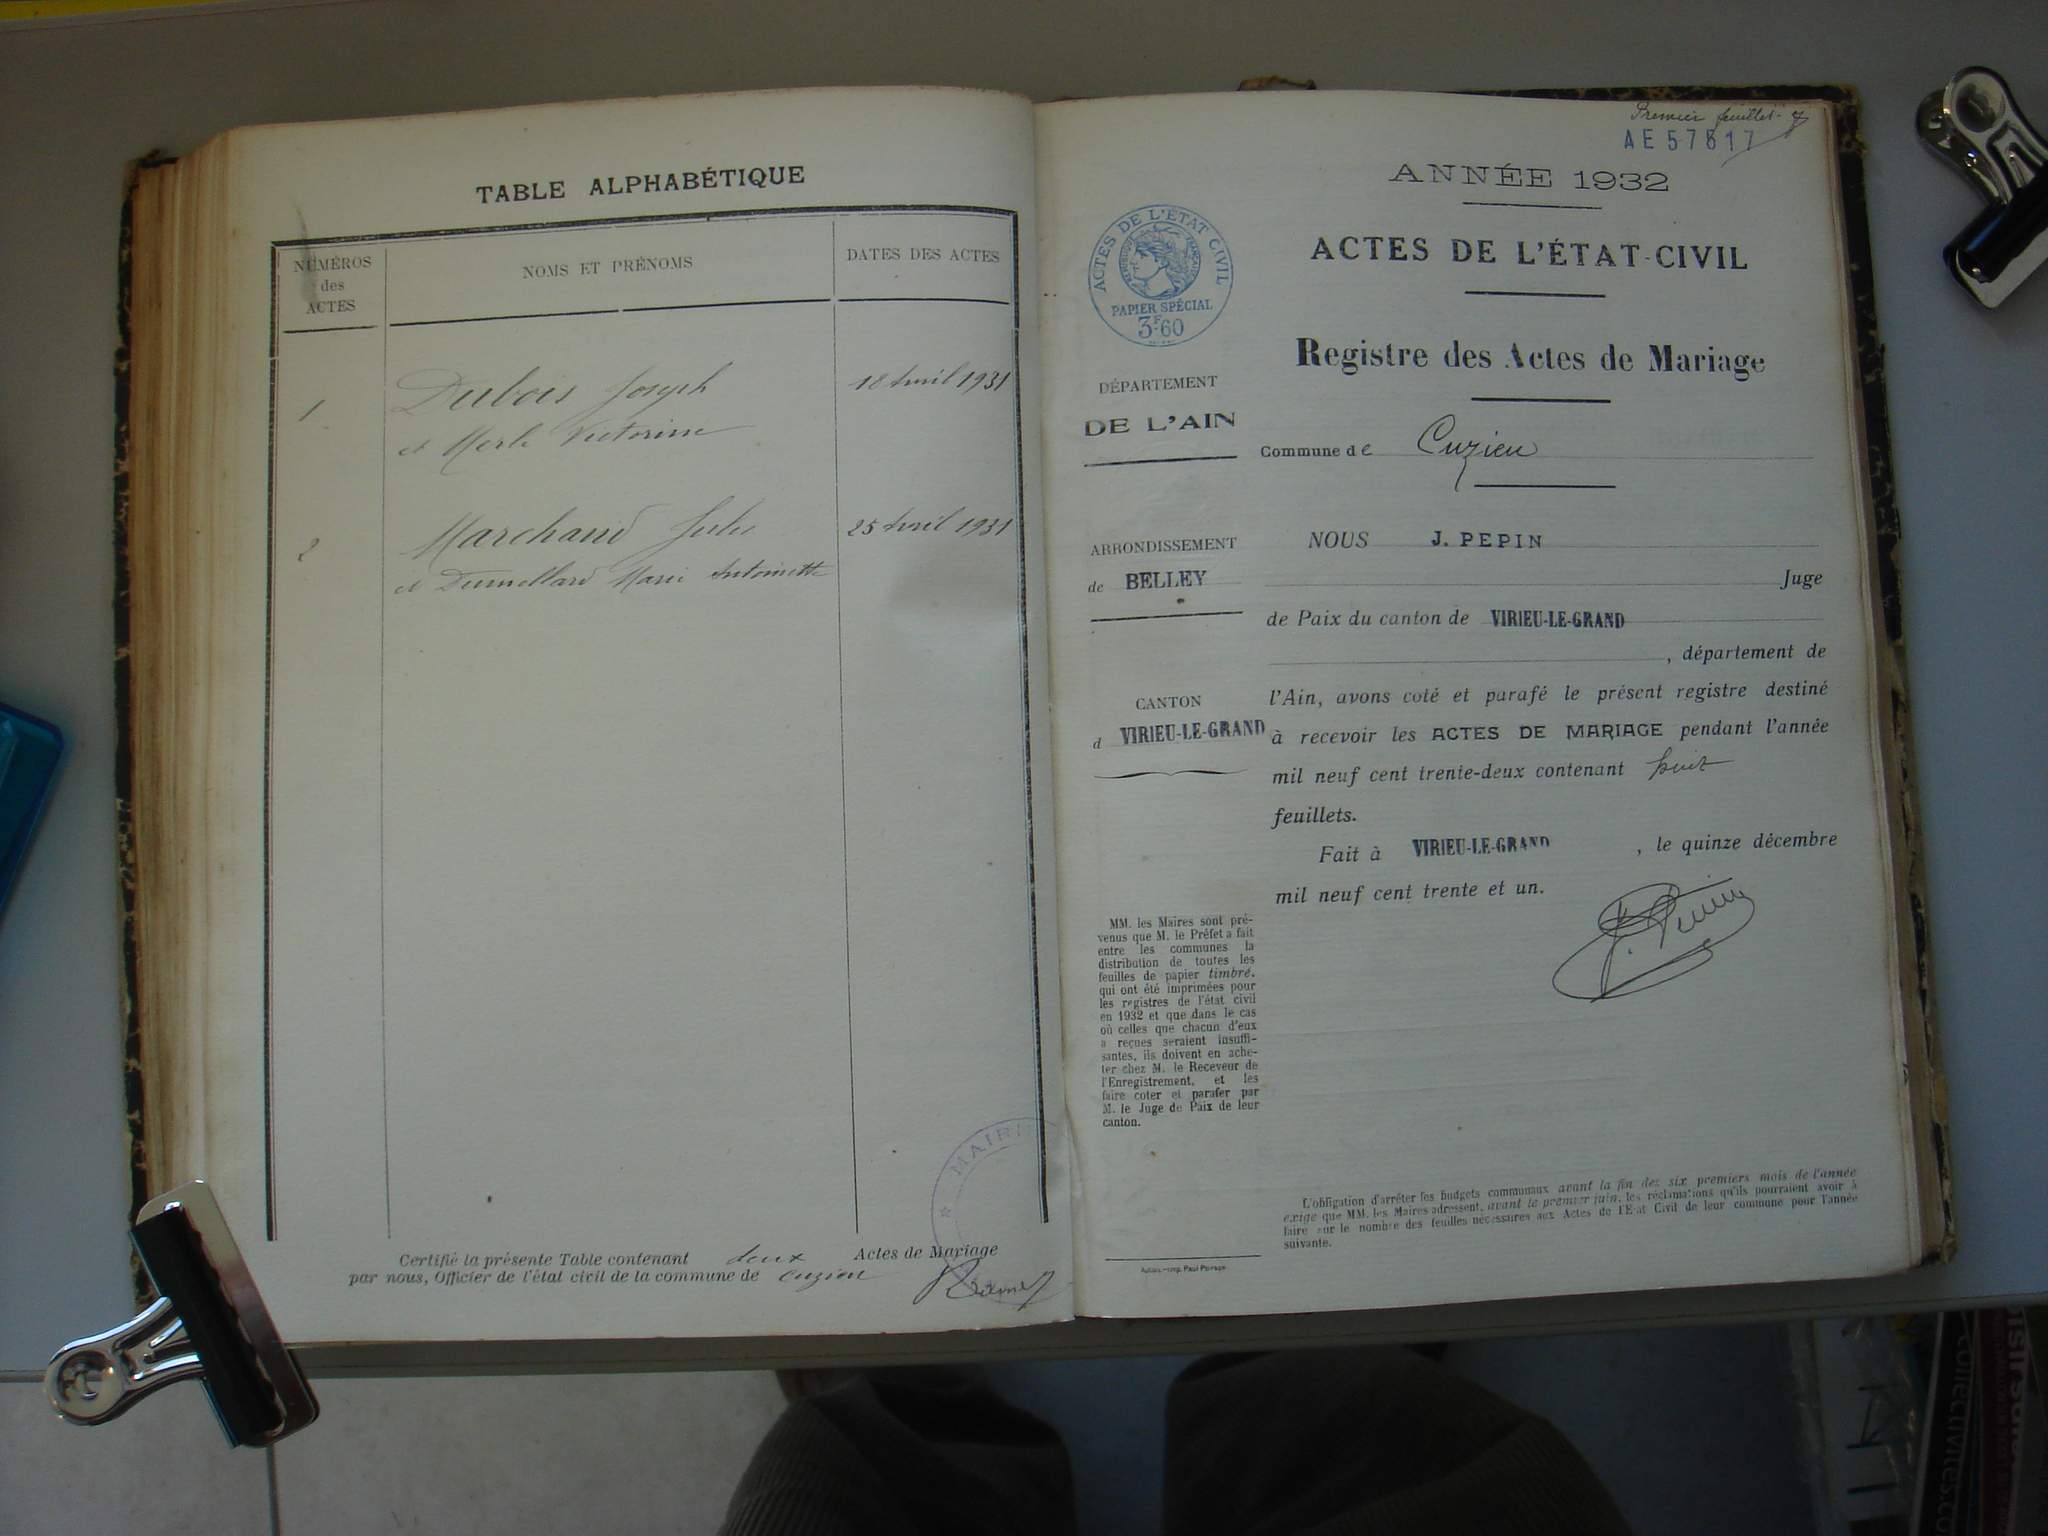 TABLE ALPHABÉTIQUE
NUMÉROS
des
ACTES
NOMS ET PRÉNOMS
DATES DES ACTES
1
Dubois Joseph
18 Avril 1931
et Merle Victorine
2
Marchand Jules
25 Avril 1931
et Marie Antoinette
MAIRIE
Certifié la présente Table contenant deux Actes de Mariage
par nous, Officier de l'état civil de la commune de Cuzieu
Premier feuillet
AE 57817
ANNÉE 1932
ACTES DE L'ÉTAT CIVIL
RÉPUBLIQUE FRANÇAISE
PAPIER SPÉCIAL
3F.60
ACTES DE L'ÉTAT-CIVIL
Registre des Actes de Mariage
DÉPARTEMENT
DE L'AIN
Commune de Cuzieu
ARRONDISSEMENT
de BELLEY
CANTON
d VIRIEU-LE-GRAND
NOUS J. PEPIN
Juge
de Paix du canton de VIRIEU-LE-GRAND
, département de
l'Ain, avons coté et parafé le présent registre destiné
à recevoir les ACTES DE MARIAGE pendant l'année
mil neuf cent trente-deux contenant huit
feuillets.
Fait à VIRIEU-LE-GRAND , le quinze décembre
mil neuf cent trente et un.
MM. les Maires sont pré-
venus que M. le Préfet a fait
entre les communes la
distribution de toutes les
feuilles de papier timbré,
qui ont été imprimées pour
les registres de l'état civil
en 1932 et que dans le cas
où celles que chacun d'eux
a reçues seraient insuffi-
santes, ils doivent en ache-
ter chez M. le Receveur de
l'Enregistrement, et les
faire coter et parafer par
M. le Juge de Paix de leur
canton.
L'obligation d'arrêter les budgets communaux avant la fin des six premiers mois de l'année
exige que MM. les Maires adressent, avant le premier juin, les réclamations qu'ils pourraient avoir à
faire sur le nombre des feuilles nécessaires aux Actes de l'Etat Civil de leur commune pour l'année
suivante.